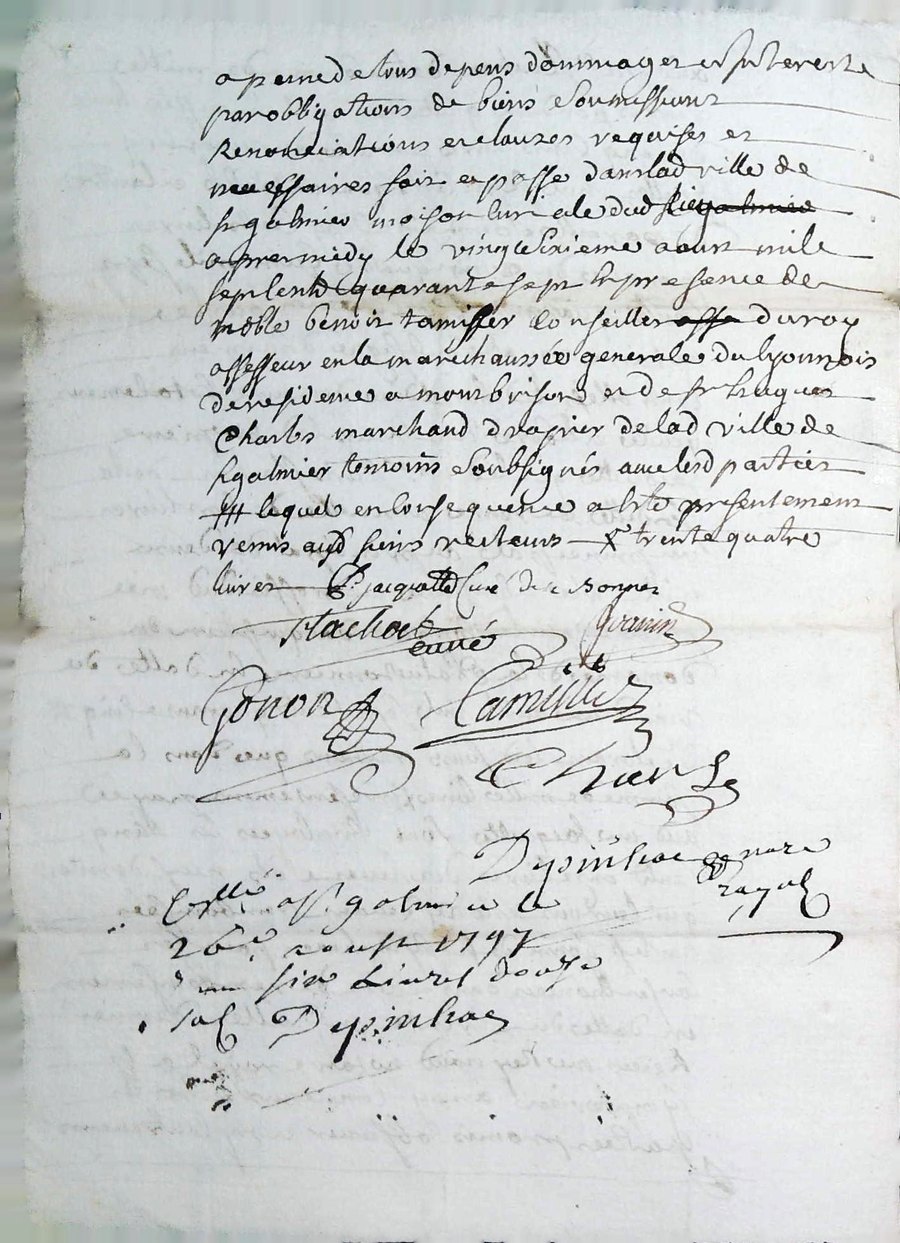 a peine de tous depens dommages et interests
par obligations de biens soumissions
Renonciations et clauzes requises et
necessaires fait et passé dans lad ville de
st galmier maison curiale dud st galmier
apres midy le vingt sixieme aoust mile
sept cent quarante sept en presence de
noble benoit tamisier conseiller asse du roy
assesseur en la marechaussée generale du lyonnois
de residence a montbrison et de sr hugues
Charles marchand drapier de lad ville de
st galmier temoins soubsignés avec lesd parties
lequel en consequence a eté presentement
remis aud sieurs recteurs trente quatre
livres jacquette Curé de
flachat curé
Gonon Tamisier
Charle
Depinhac nore
royal
Conllé a st galmier le
26e aoust 1747
six livres douze
sols Depinhac